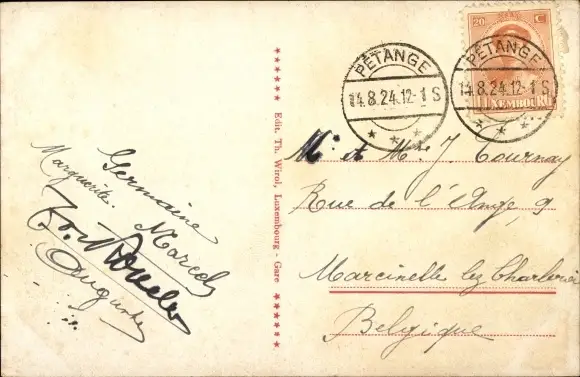 20 C
LUXEMBOURG
PÉTANGE
14.8.24.12-1 S
PÉTANGE
14.8.24.12-1 S
Edit. Th. Wirol, Luxembourg - Gare
Germaine
Marguerite.
Marcel
Auguste
Mr et Mme J. Tournay
Rue de l'Ange, 9
Marcinelle lez Charleroi
Belgique